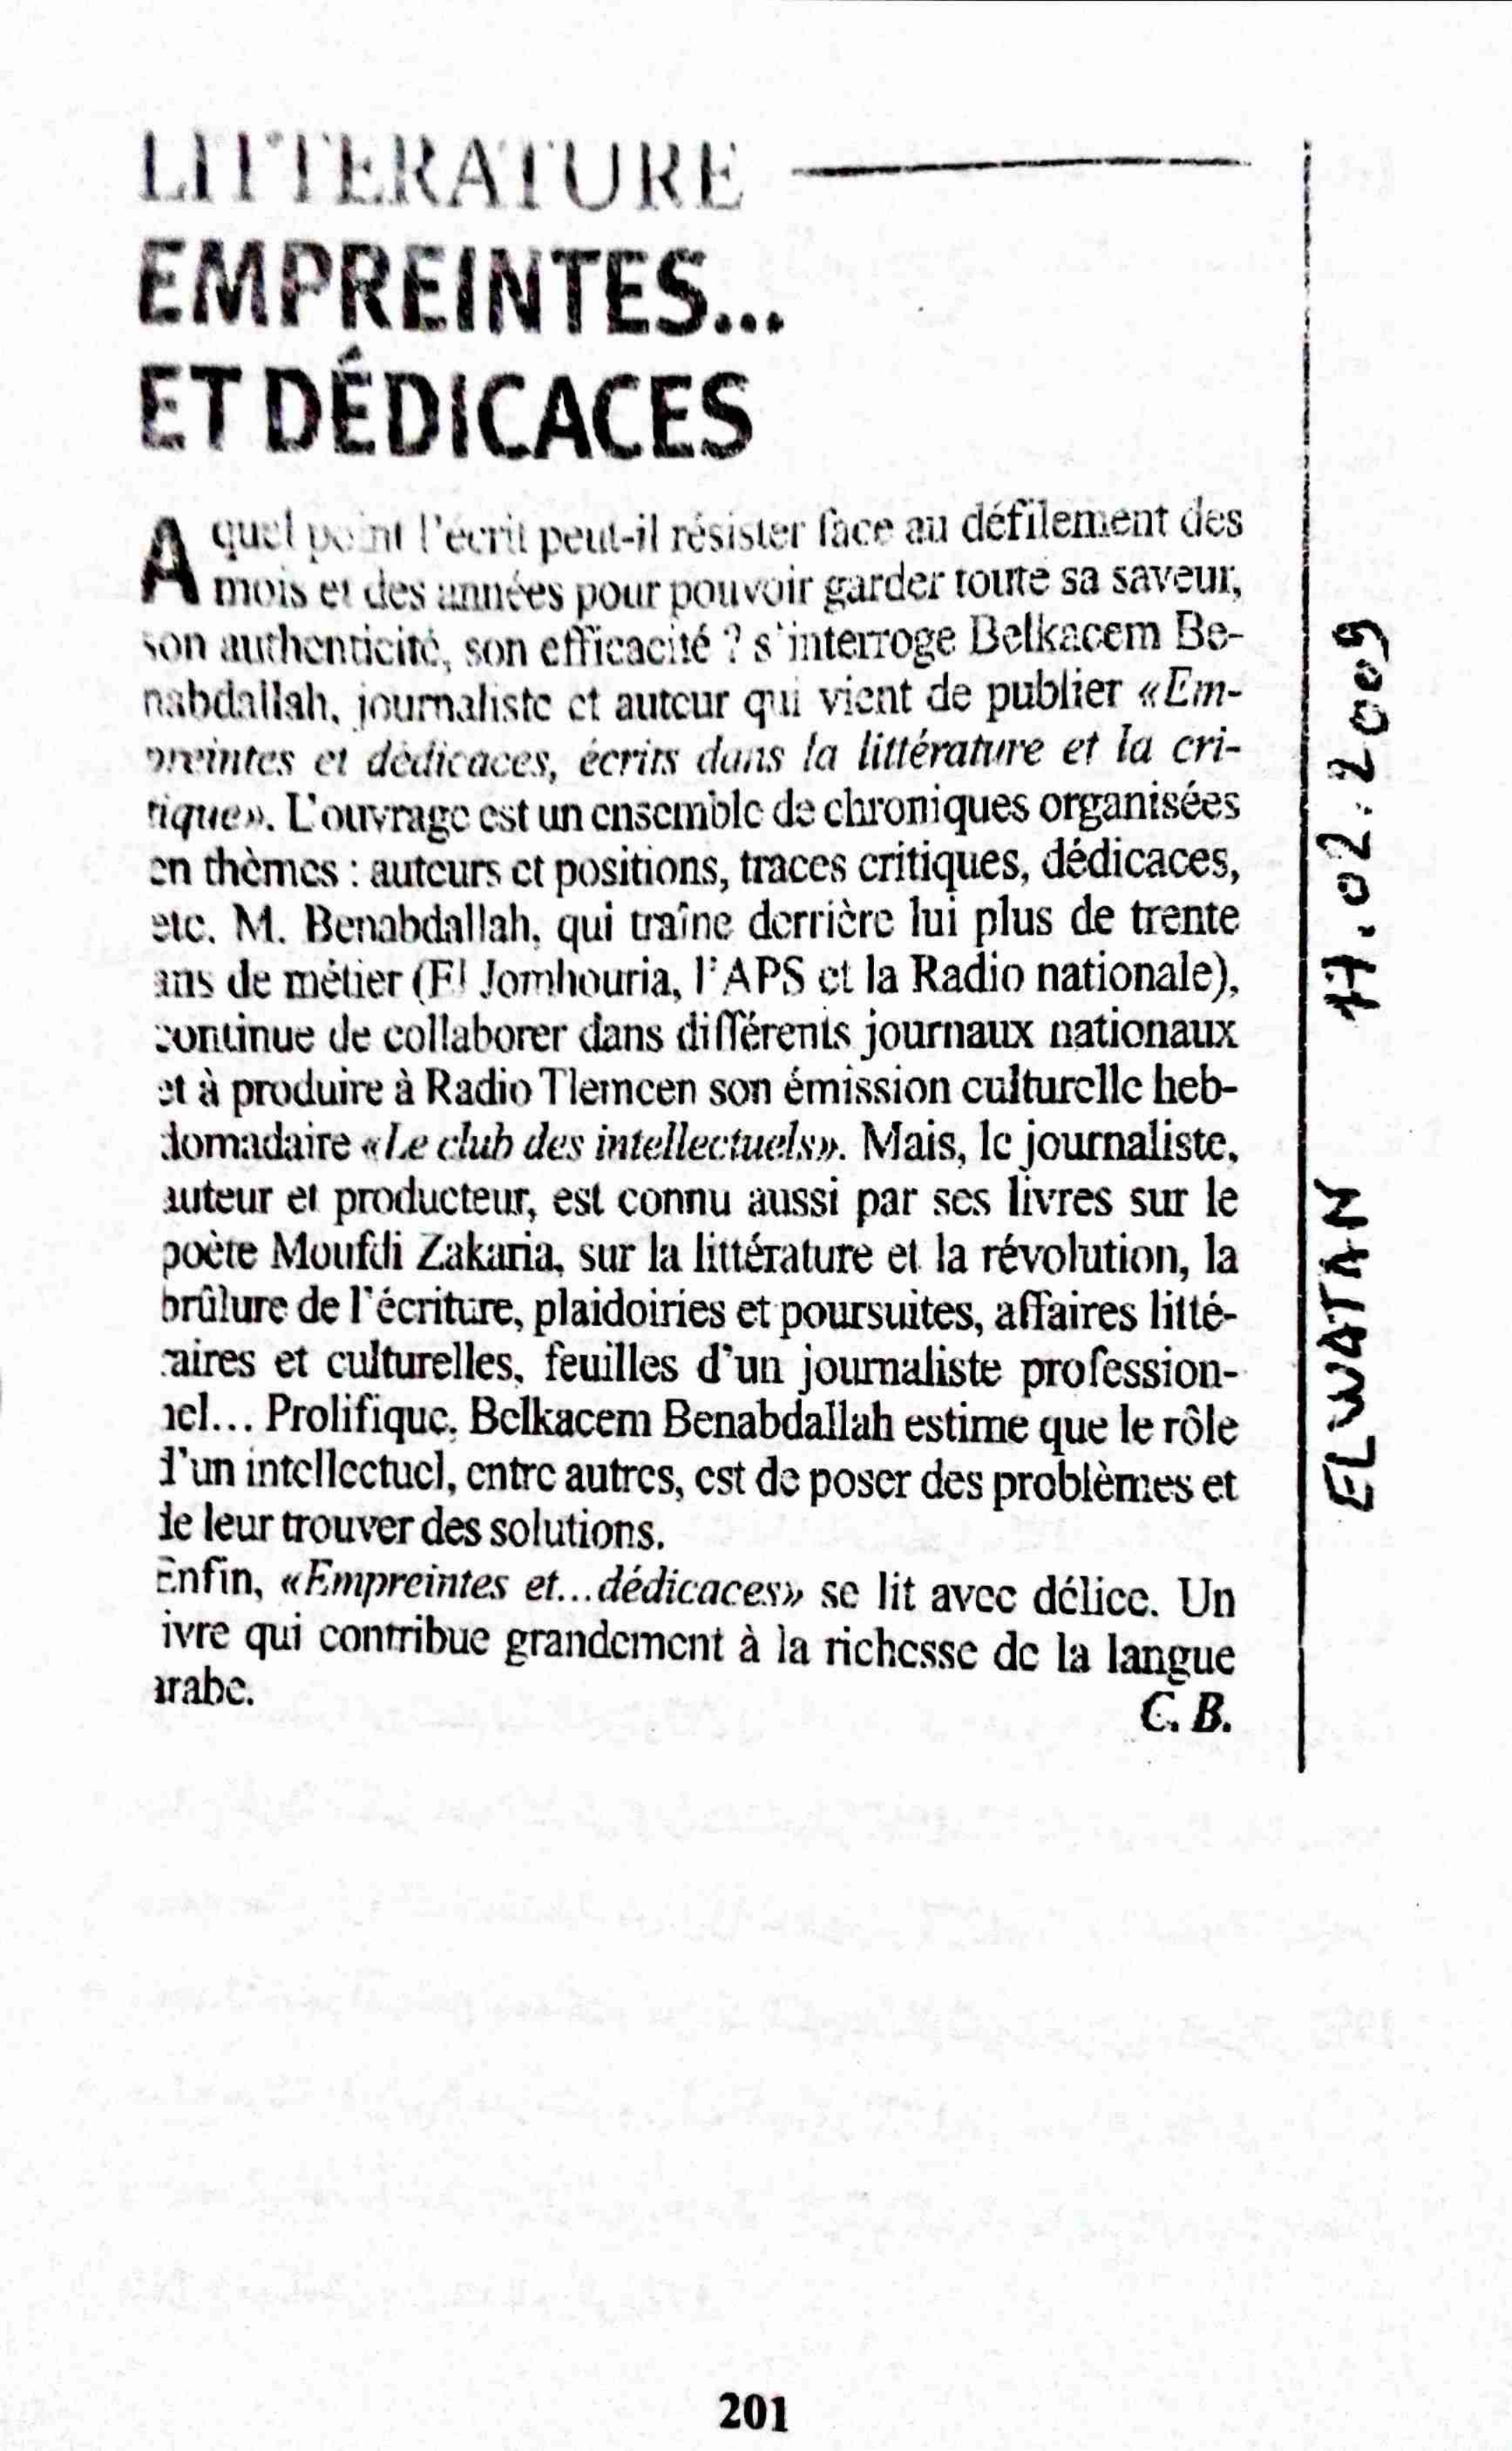 LITTERATURE
EMPREINTES...
ET DÉDICACES
A quel point l'écrit peut-il résister face au défilement des
mois et des années pour pouvoir garder toute sa saveur,
son authenticité, son efficacité ? s'interroge Belkacem Be-
nabdallah, journaliste et auteur qui vient de publier «Em-
preintes et dédicaces, écrits dans la littérature et la cri-
tique». L'ouvrage est un ensemble de chroniques organisées
en thèmes : auteurs et positions, traces critiques, dédicaces,
etc. M. Benabdallah, qui traîne derrière lui plus de trente
ans de métier (El Jomhouria, l'APS et la Radio nationale),
continue de collaborer dans différents journaux nationaux
et à produire à Radio Tlemcen son émission culturelle heb-
domadaire «Le club des intellectuels». Mais, le journaliste,
auteur et producteur, est connu aussi par ses livres sur le
poète Moufdi Zakaria, sur la littérature et la révolution, la
brûlure de l'écriture, plaidoiries et poursuites, affaires litté-
raires et culturelles, feuilles d'un journaliste profession-
nel... Prolifique, Belkacem Benabdallah estime que le rôle
d'un intellectuel, entre autres, est de poser des problèmes et
de leur trouver des solutions.
Enfin, «Empreintes et...dédicaces» se lit avec délice. Un
livre qui contribue grandement à la richesse de la langue
arabe.
C. B.
ELWATAN 11.02.2009
201